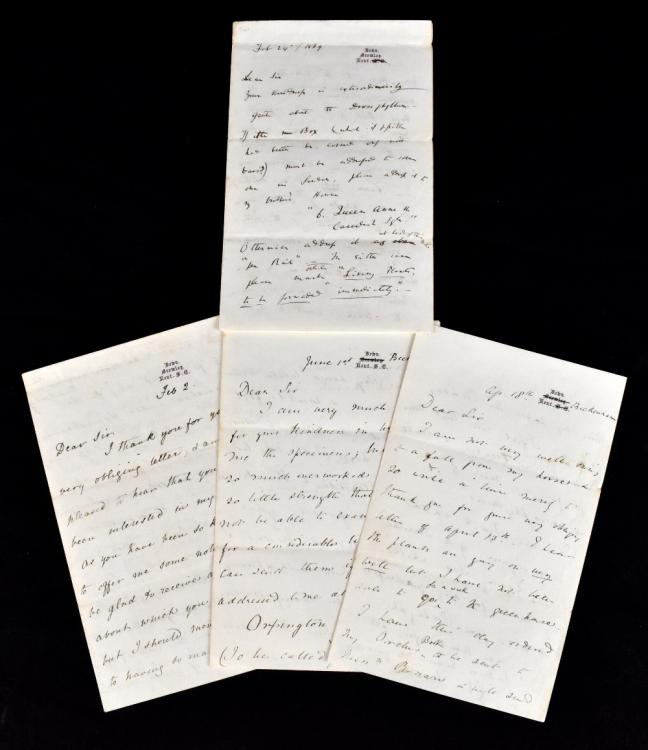 Feb 24th / 1869
Down.
Bromley.
Kent. S.E.
Dear Sir
Your kindness is extraordinary
about to Drosophyllum
If the Box
had better be
bars?) must be addressed to some
one in London, please address it to
my brother's House
"6. Queen Anne St
Cavendish Sqre"
Otherwise address it as
"per Rail" In either case
please mark "Living Plants,
to be forwarded immediately".—
Down.
Bromley.
Kent. S.E.
Feb 2.
Dear Sir.
I thank you for yo
very obliging letter, & am
pleased to hear that you
been interested in my
As you have been so k
to offer me some not
be glad to receive a
about which you
but I should
to having so ma
June 1st
Down.
Bromley.
Kent. S.E.
Bec
Dear Sir
I am very much
for your kindness in
me the specimens; bu
so much overworked
so little strength that
not be able to exam
for a considerable ti
can send them if
addressed to me at
Orpington
(To be called
Ap. 18th
Down.
Bromley.
Kent. S.E.
Beckenham
Dear Sir
I am not very well owing
to a fall from my horse &
so write a line merely to
thank you for your very obliging
letter of April 13th. I hear
the plants are going on very
well but I have not been
able to go to the greenhouse
I have this day ordered
my Orchis Book to be sent to